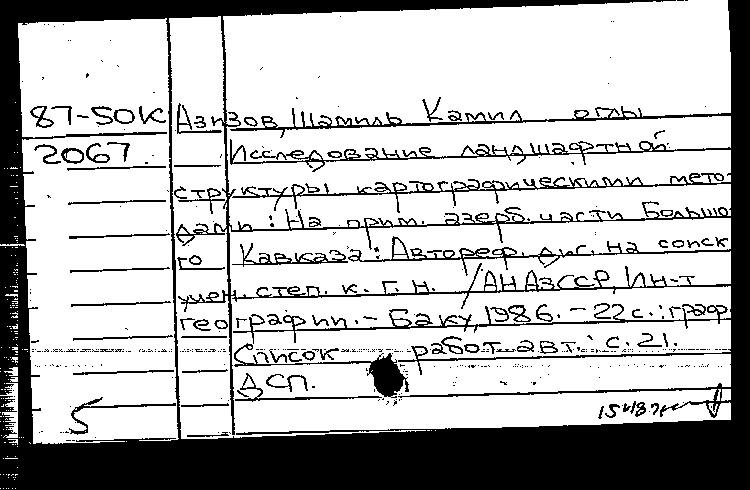 87-50К Азизов, Шамиль Камил оглы
2067 Исследование ландшафтной
структуры картографическими мето-
дами : На прим. азерб. части Большо-
го Кавказа : Автореф. дис. на соиск.
учен. степ. к. г. н. / АН АзССР, Ин-т
географии. - Баку, 1986. - 22 с. : граф.
Список работ авт. : с. 21.
ДСП.
5